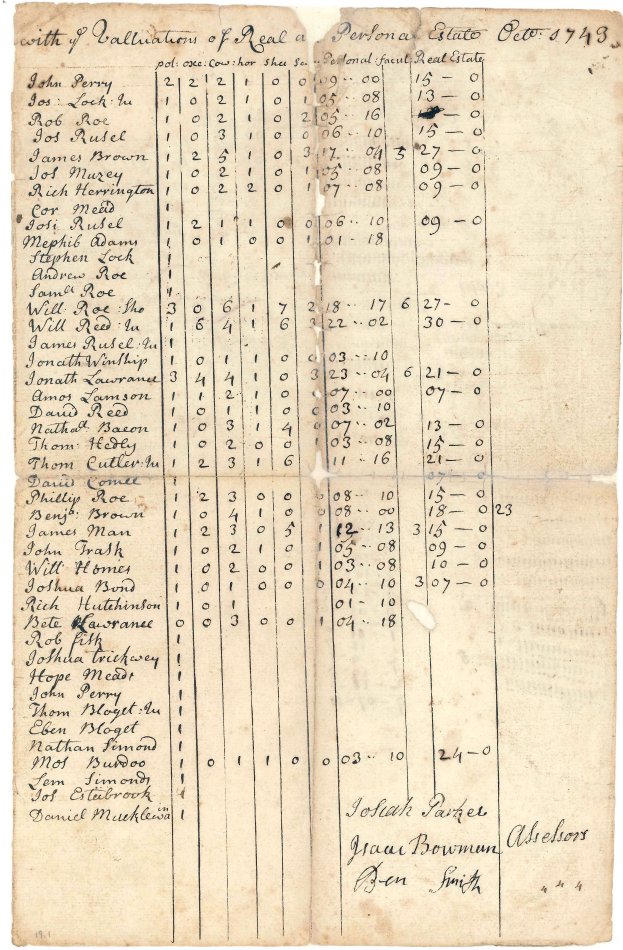 with yͤ Valluations of Real a Personal Estate Octo: 1743
pol: oxe: Cow: hor shee Sw Personal : facul Real Estate
John Perry 2 2 2 1 0 0 09 ·· 00 15 — 0
Jos: Lock: Ju 1 0 2 1 0 1 05 ·· 08 13 — 0
Rob Roe 1 0 2 1 0 2 05 ·· 16 — 0
Jos Rusel 1 0 3 1 0 0 06 ·· 10 15 — 0
James Brown 1 2 5 1 0 3 17 ·· 04 5 27 — 0
Jos Muzey 1 0 2 1 0 1 05 ·· 08 09 — 0
Rich Herrington 1 0 2 2 0 1 07 ·· 08 09 — 0
Cor Mead 1
Josi Rusel 1 2 1 1 0 0 06 ·· 10 09 — 0
Mephib Adams 1 0 1 0 0 1 01 · 18
Stephen Lock 1
Andrew Roe 1
Samˡˡ Roe 1
Will Roe: Sho 3 0 6 1 7 2 18 ·· 17 6 27 — 0
Will Reed: Ju 1 6 4 1 6 3 22 ·· 02 30 — 0
James Rusel: Ju 1
Jonath Winship 1 0 1 1 0 0 03 ·· 10
Jonath Lawrance 3 4 4 1 0 3 23 ·· 04 6 21 — 0
Amos Lamson 1 1 2 1 0 0 07 ·· 00 07 — 0
David Reed 1 0 1 1 0 0 03 ·· 10
Nathaˡ: Bacon 1 0 3 1 4 0 07 ·· 02 13 — 0
Thom: Hedly 1 0 2 0 0 1 03 ·· 08 15 — 0
Thom Cutler: Ju 1 2 3 1 6 11 ·· 16 21 — 0
David 1 07 — 0
Phillip Roe 1 2 3 0 0 0 08 ·· 10 15 — 0
Benjᵃ: Brown 1 0 4 1 0 0 08 ·· 00 18 — 0 23
James Man 1 2 3 0 5 1 12 ·· 13 3 15 — 0
John Trask 1 0 2 1 0 1 05 ·· 08 09 — 0
Will Homes 1 0 2 0 0 1 03 ·· 08 10 — 0
Joshua Bond 1 0 1 0 0 0 04 ·· 10 3 07 — 0
Rich Hutchinson 1 0 1 01 ·· 10
Bete Lawrance 0 0 3 0 0 1 04 ·· 18
Rob Fisk 1
Joshua Trickwey 1
Hope Mead 1
John Perry 1
Thom Bloget: Ju 1
Eben Bloget 1
Nathan Simond 1
Mos Burdoo 1 0 1 1 0 0 03 ·· 10 24 — 0
Lem Simonds 1
Jos Estabrook 1
Daniel 1
Josiah Parker
Isaac Bowman Assessors
Ben Smith
19.1